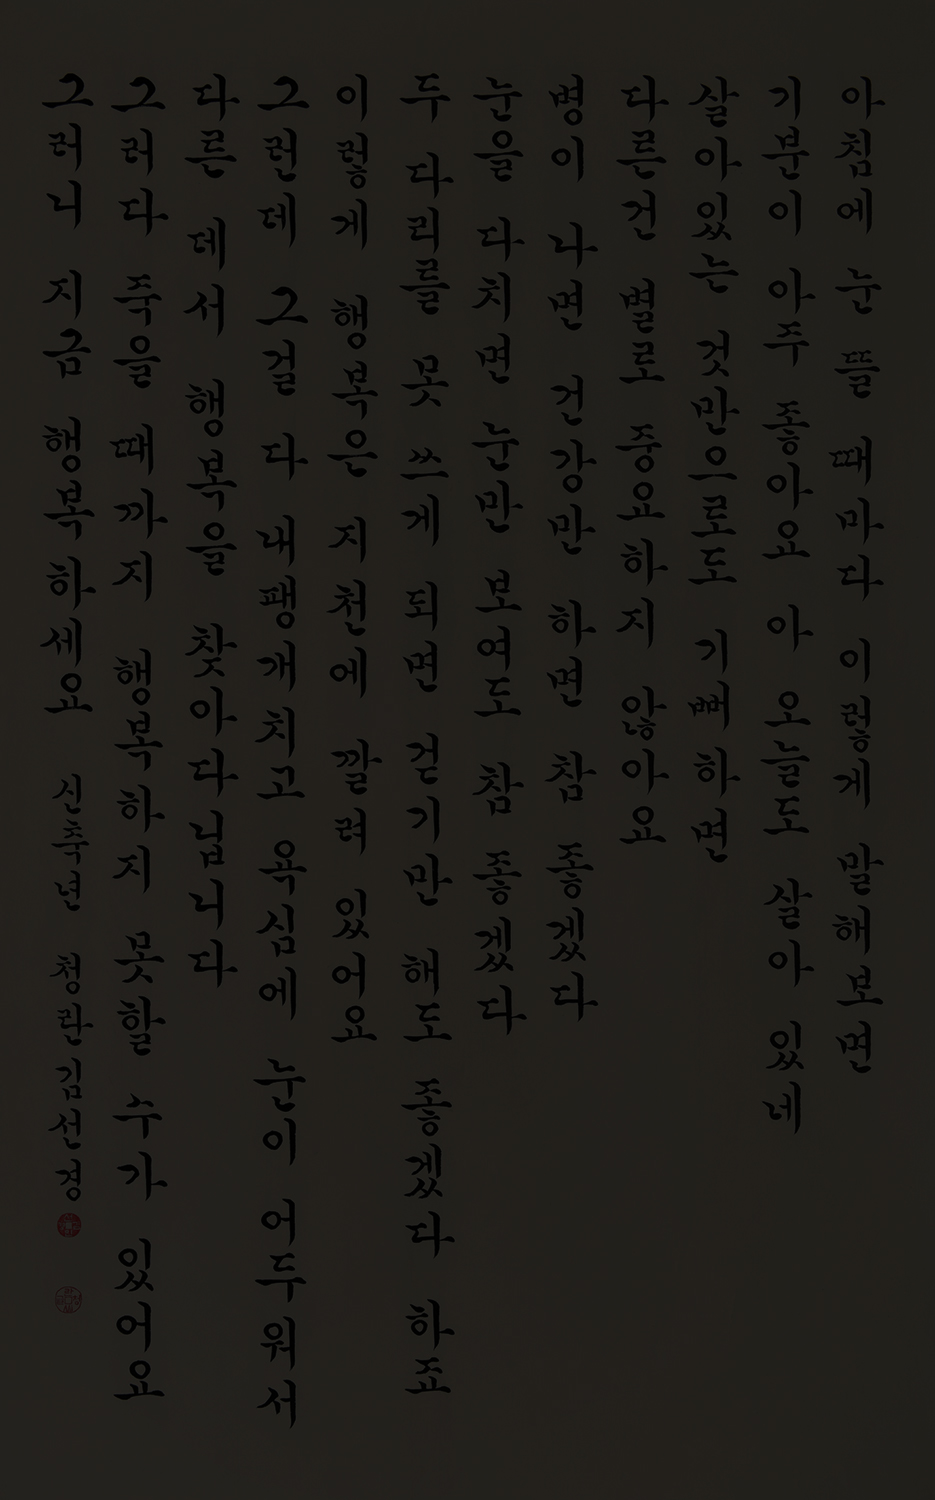 아침에 눈 뜰 때마다 이렇게 말해보면
기분이 아주 좋아요 아 오늘도 살아 있네
살아있는 것만으로도 기뻐하면
다른건 별로 중요하지 않아요
병이 나면 건강만 하면 참 좋겠다
눈을 다치면 눈만 보여도 참 좋겠다
두 다리를 못 쓰게 되면 걷기만 해도 좋겠다 하죠
이렇게 행복은 지천에 깔려 있어요
그런데 그걸 다 내팽개치고 욕심에 눈이 어두워서
다른 데서 행복을 찾아다닙니다
그러다 죽을 때까지 행복하지 못할 수가 있어요
그러니 지금 행복하세요 신축년 청란김선경